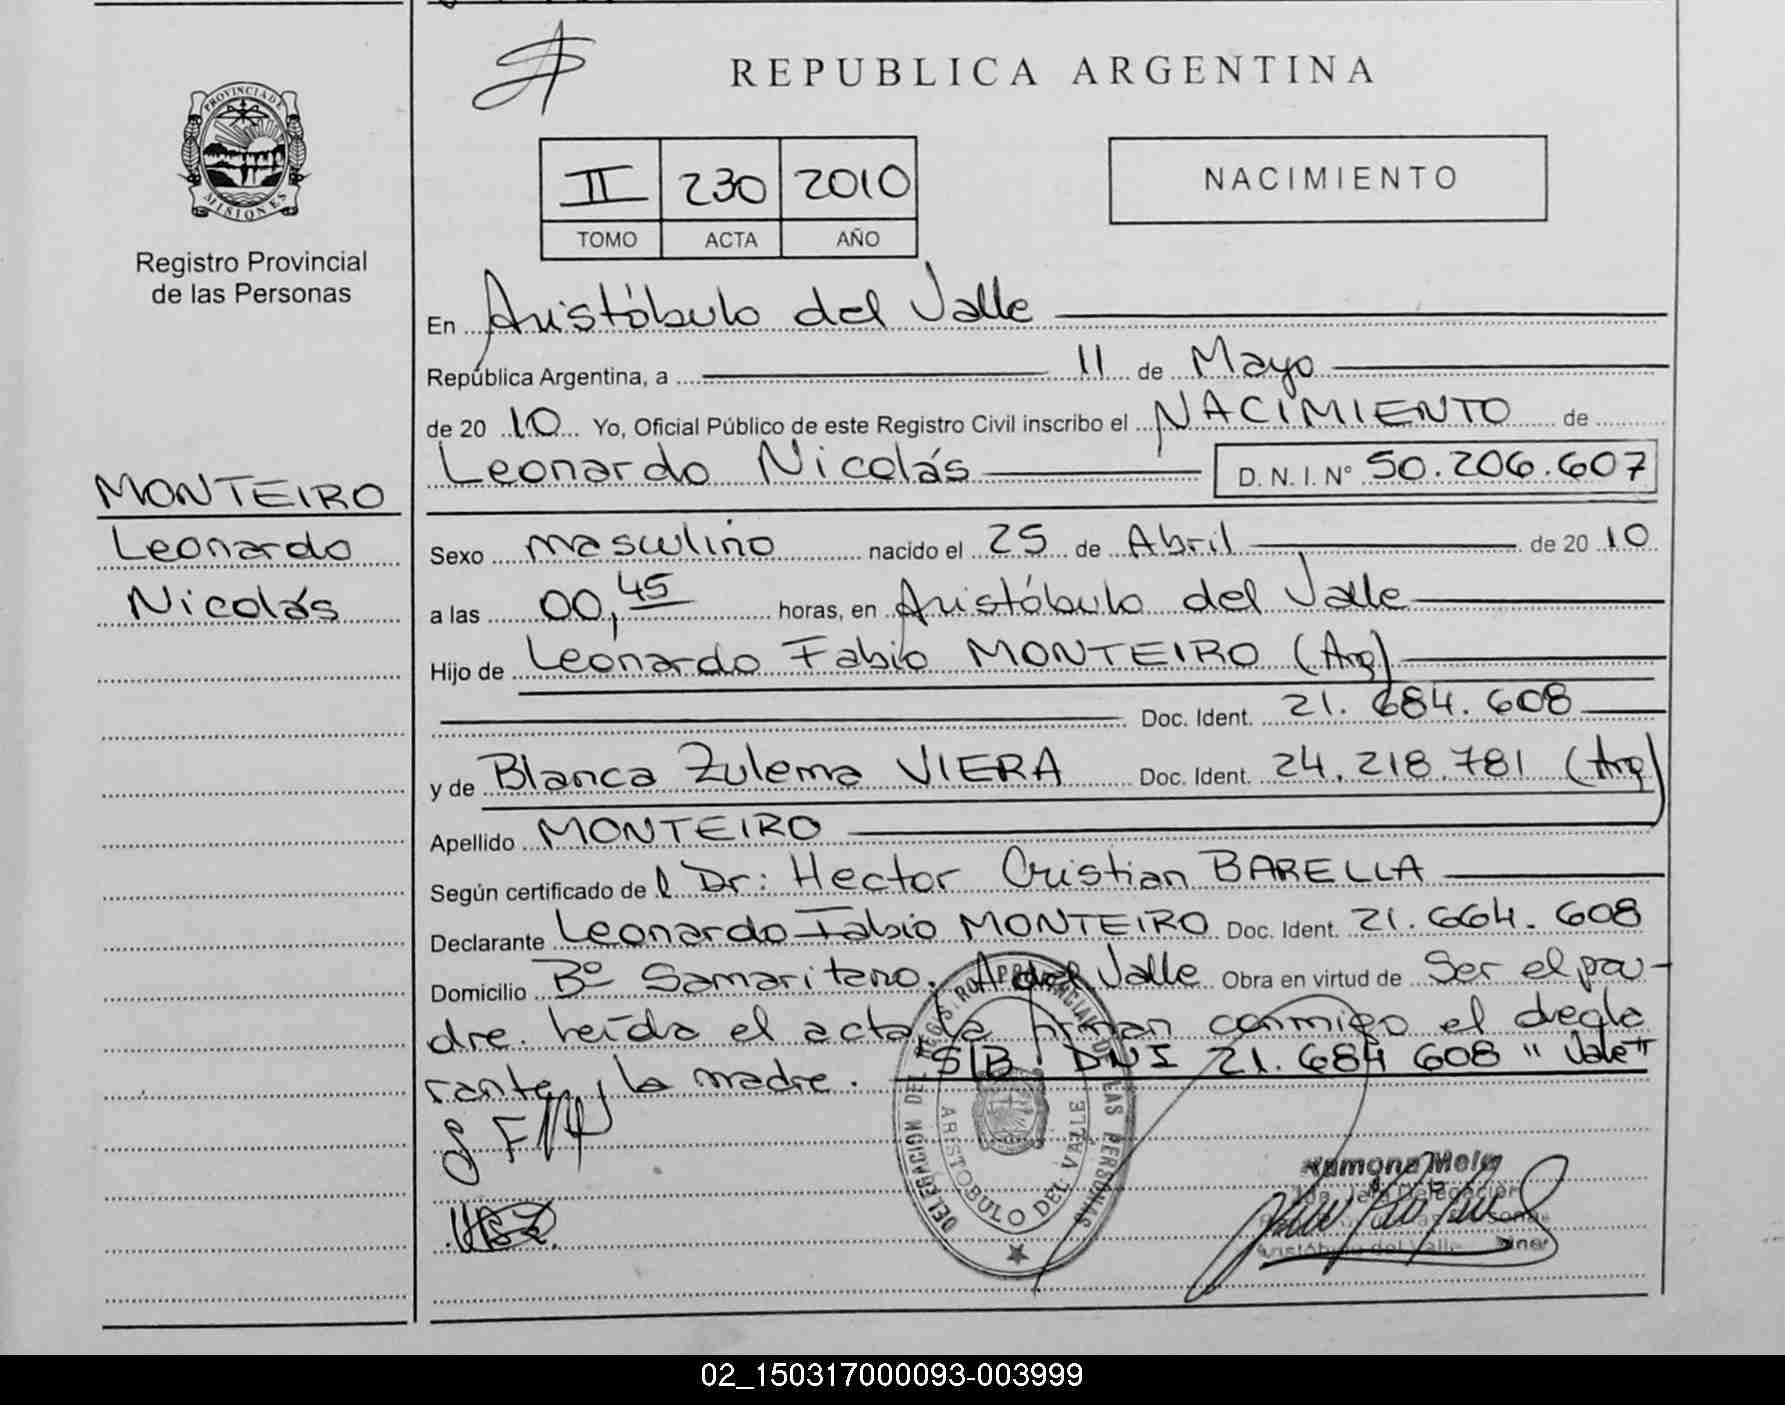 REPUBLICA ARGENTINA
PROVINCIA DE
MISIONES
Registro Provincial
de las Personas
II 230 2010
TOMO ACTA AÑO
NACIMIENTO
En Aristóbulo del Valle
República Argentina, a 11 de Mayo
de 20 10 Yo, Oficial Público de este Registro Civil inscribo el NACIMIENTO de
Leonardo Nicolás D. N. I. N° 50.206.607
MONTEIRO
Leonardo
Nicolás
Sexo masculino nacido el 25 de Abril de 20 10
a las 00,45 horas, en Aristóbulo del Valle
Hijo de Leonardo Fabio MONTEIRO (Arg)
Doc. Ident. 21.684.608
y de Blanca Zulema VIERA Doc. Ident. 24.218.781 (Arg)
Apellido MONTEIRO
Según certificado de l Dr: Hector Cristian BARELLA
Declarante Leonardo Fabio MONTEIRO Doc. Ident. 21.664.608
Domicilio Bº Samaritano. A del Valle Obra en virtud de Ser el pa-
dre. Leída el acta la firman conmigo el decla
rante y la madre. S/B DNI 21.684 608 "Vale"
DELEGACION DEL REGISTRO PROVINCIAL DE LAS PERSONAS
ARISTOBULO DEL VALLE
Ramona
Jefa Delegación
Aristóbulo del Valle
02_150317000093-003999